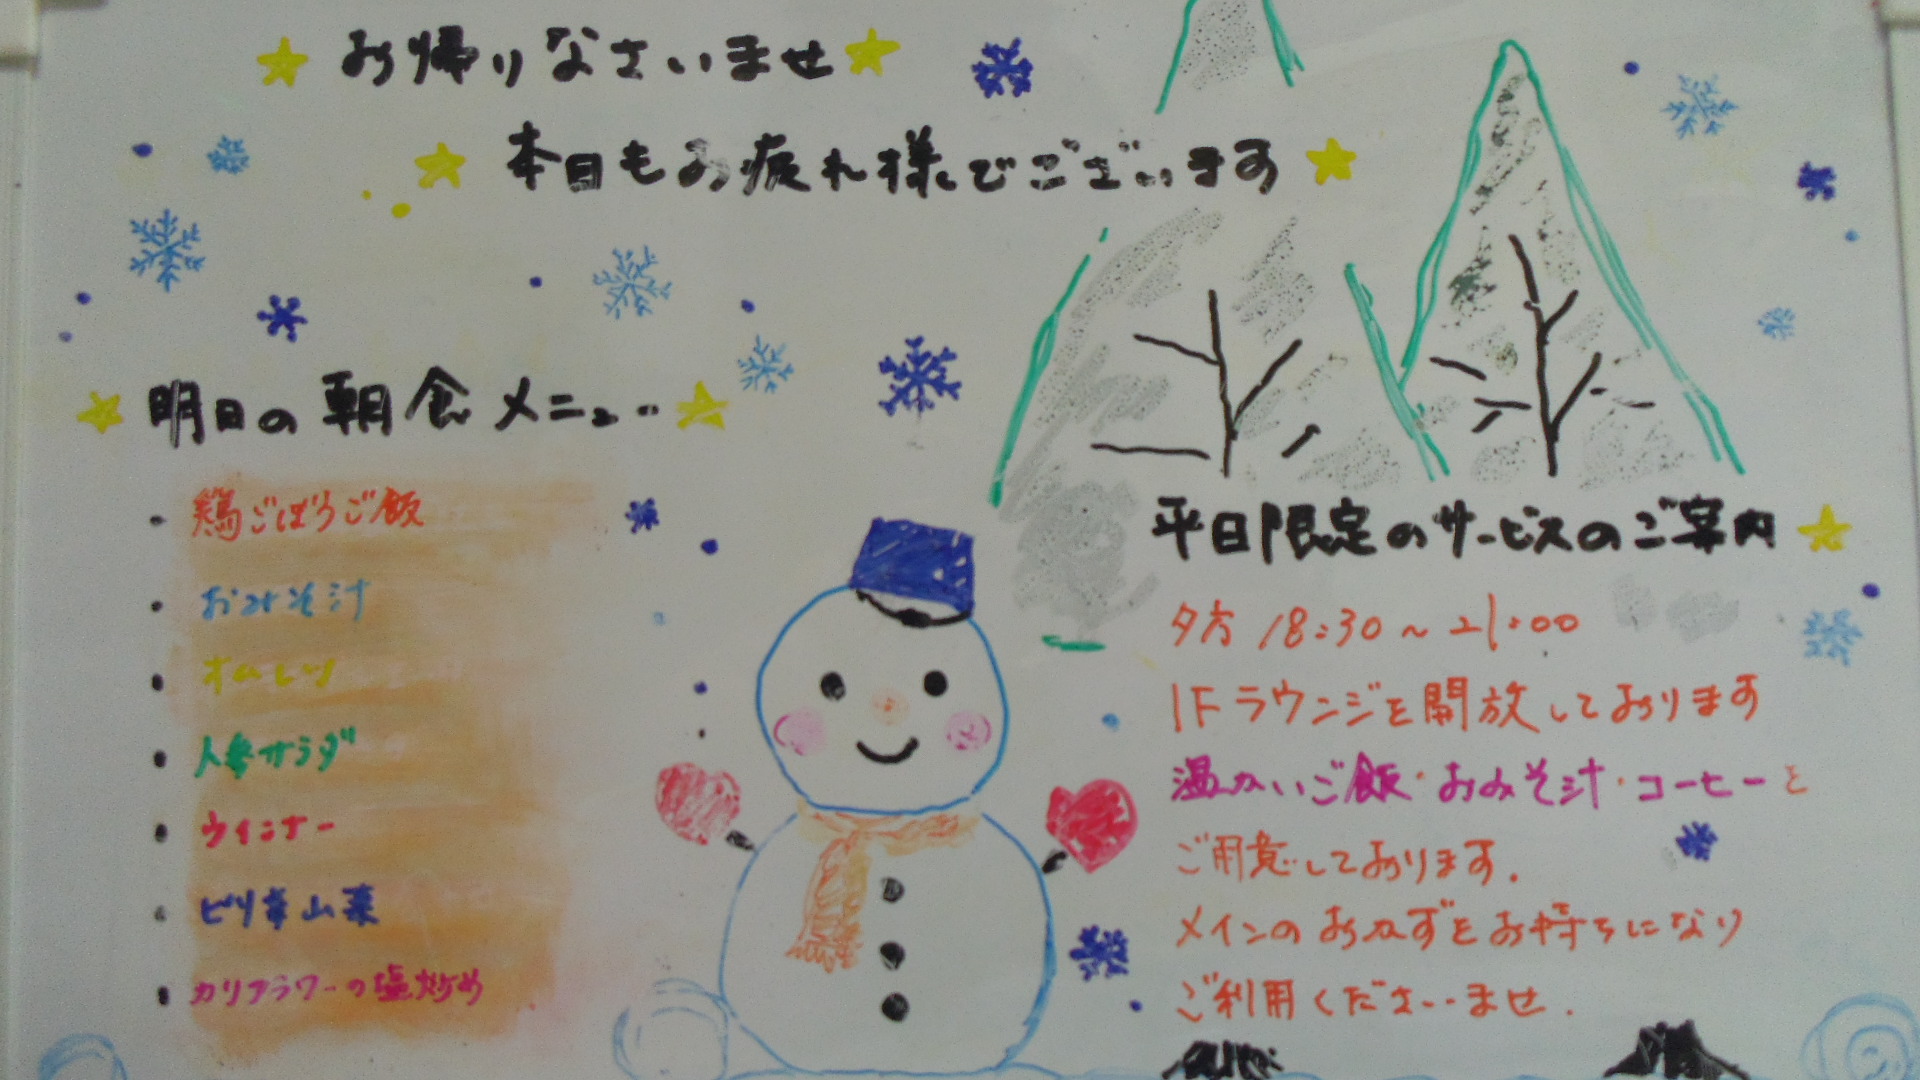 お帰りなさいませ
本日もお疲れ様でございます
明日の朝食メニュー
・鶏ごぼうご飯
・おみそ汁
・オムレツ
・人参サラダ
・ウインナー
・ピリ辛山菜
・カリフラワーの塩炒め
平日限定のサービスのご案内
夕方 18:30～21:00
1Fラウンジを開放しております
温かいご飯・おみそ汁・コーヒーを
ご用意しております.
メインのおかずをお持ちになり
ご利用くださいませ.